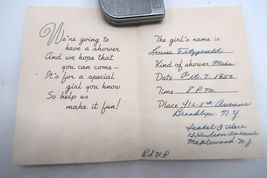 We're going to
have a shower
And we hope that
you can come —
It's for a special
girl you know
So help us
make it fun!
The girl's name is
Louise Fitzgerald
Kind of shower Misc
Date Oct. 7.
Time 8 P.M.
Place 412-8th Avenue
Brooklyn N.Y
Hudson Avenue
Maplewood N.J.
R.S.V.P.